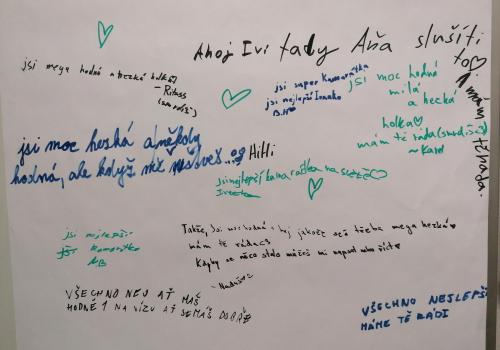 Ahoj Ivi tady Aňa sluší ti
to♡ mám tě ráda.
jsi mega hodná a hezká holka
~ Ritass
jsi super kamarátka
jsi nejlepší Ivanko
B.H♡
jsi moc hodná
milá
a hezká
holka♡
mám tě ráda
~ Kard
jsi moc hezká a někdy
hodná, ale když mě neštveš...
Hitli
jsi nejlepší kamarátka na světě♡
jsi nejlepší
jsi kamarátka
MB
Takže, jsi moc hodná a taky mega hezká♥
mám tě ráda<3
Kdyby se něco stalo můžeš mi napsat nebo říct♥
VŠECHNO NEJ AŤ MÁŠ
HODNĚ 1 NA VÍZU AŤ SE MÁŠ DOBŘE
VŠECHNO NEJLEPŠÍ
MÁME TĚ RÁDI